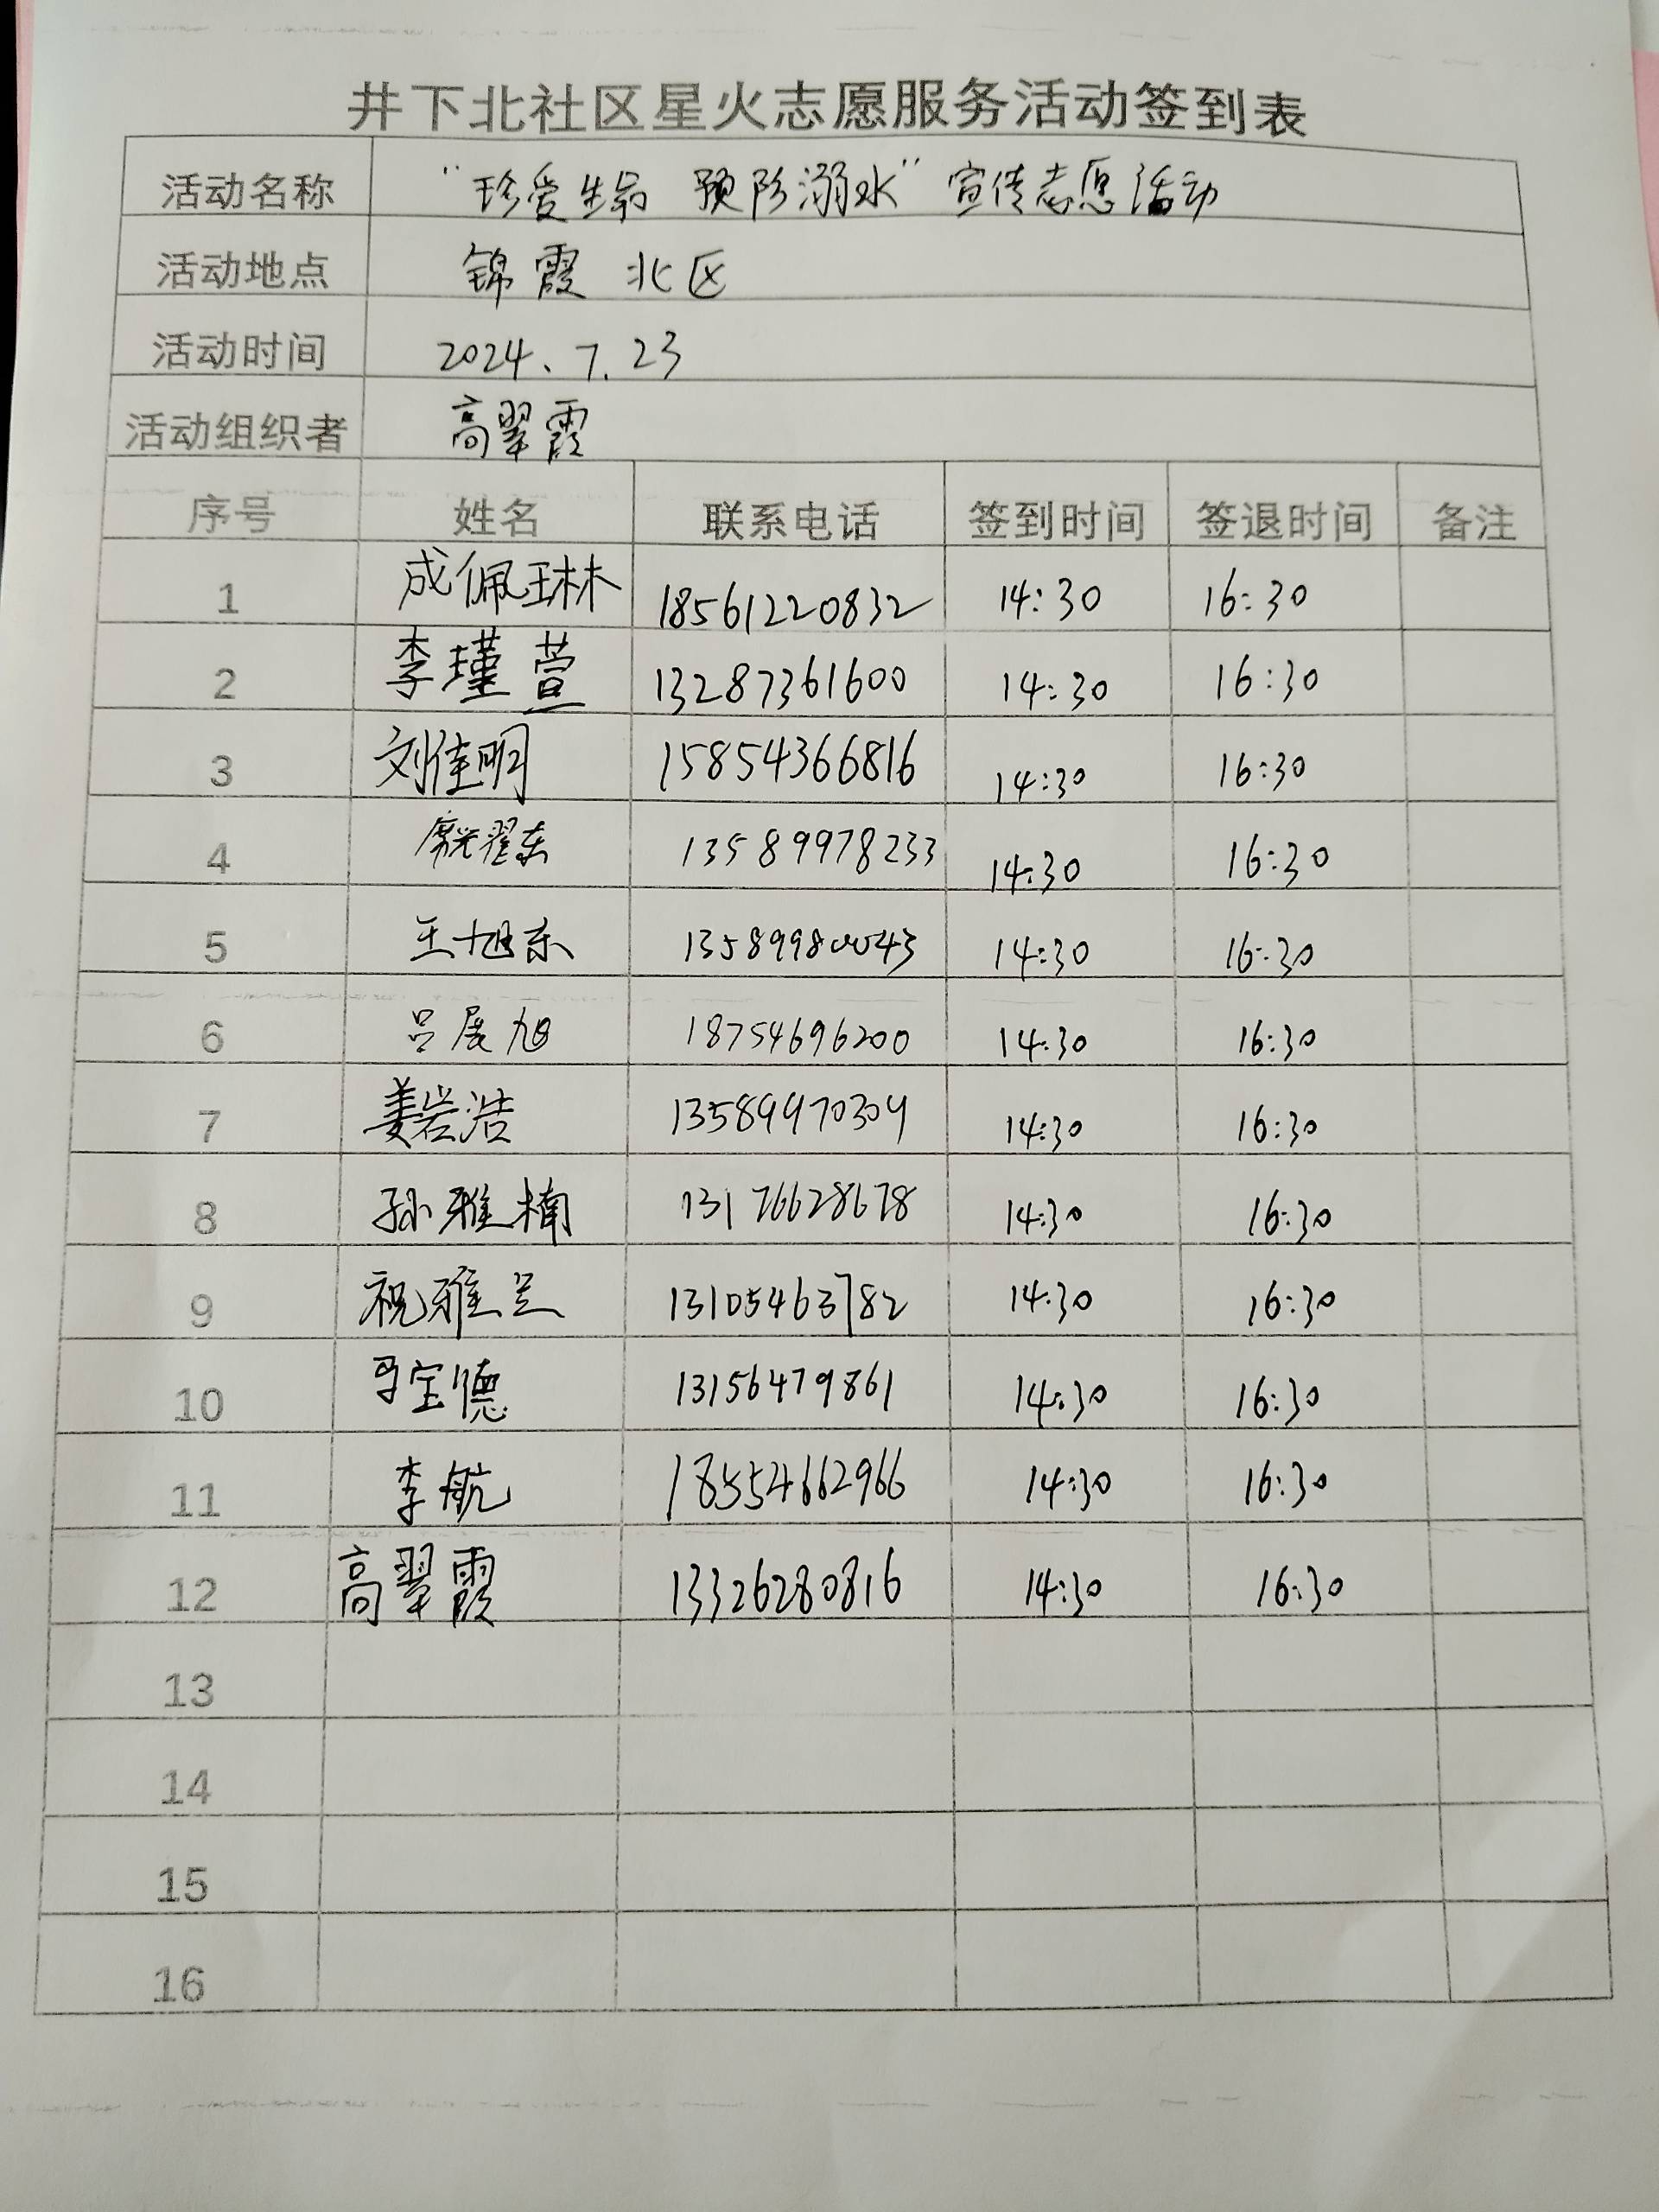 井下北社区星火志愿服务活动签到表
活动名称 “珍爱生命 预防溺水”宣传志愿活动
活动地点 锦霞 北区
活动时间 2024、7.23
活动组织者 高翠霞
序号 姓名 联系电话 签到时间 签退时间 备注
1 成佩琳 18561220832 14:30 16:30
2 李瑾萱 13287361600 14:30 16:30
3 刘佳明 15854366816 14:30 16:30
4 13589978233 14:30 16:30
5 王旭东 13589980043 14:30 16:30
6 吕展旭 18754696200 14:30 16:30
7 姜岩浩 13589970309 14:30 16:30
8 孙雅楠 13176628678 14:30 16:30
9 祝雅兰 13105463782 14:30 16:30
10 宝德 13156479861 14:30 16:30
11 李航 18554662966 14:30 16:30
12 高翠霞 13326280816 14:30 16:30
13
14
15
16